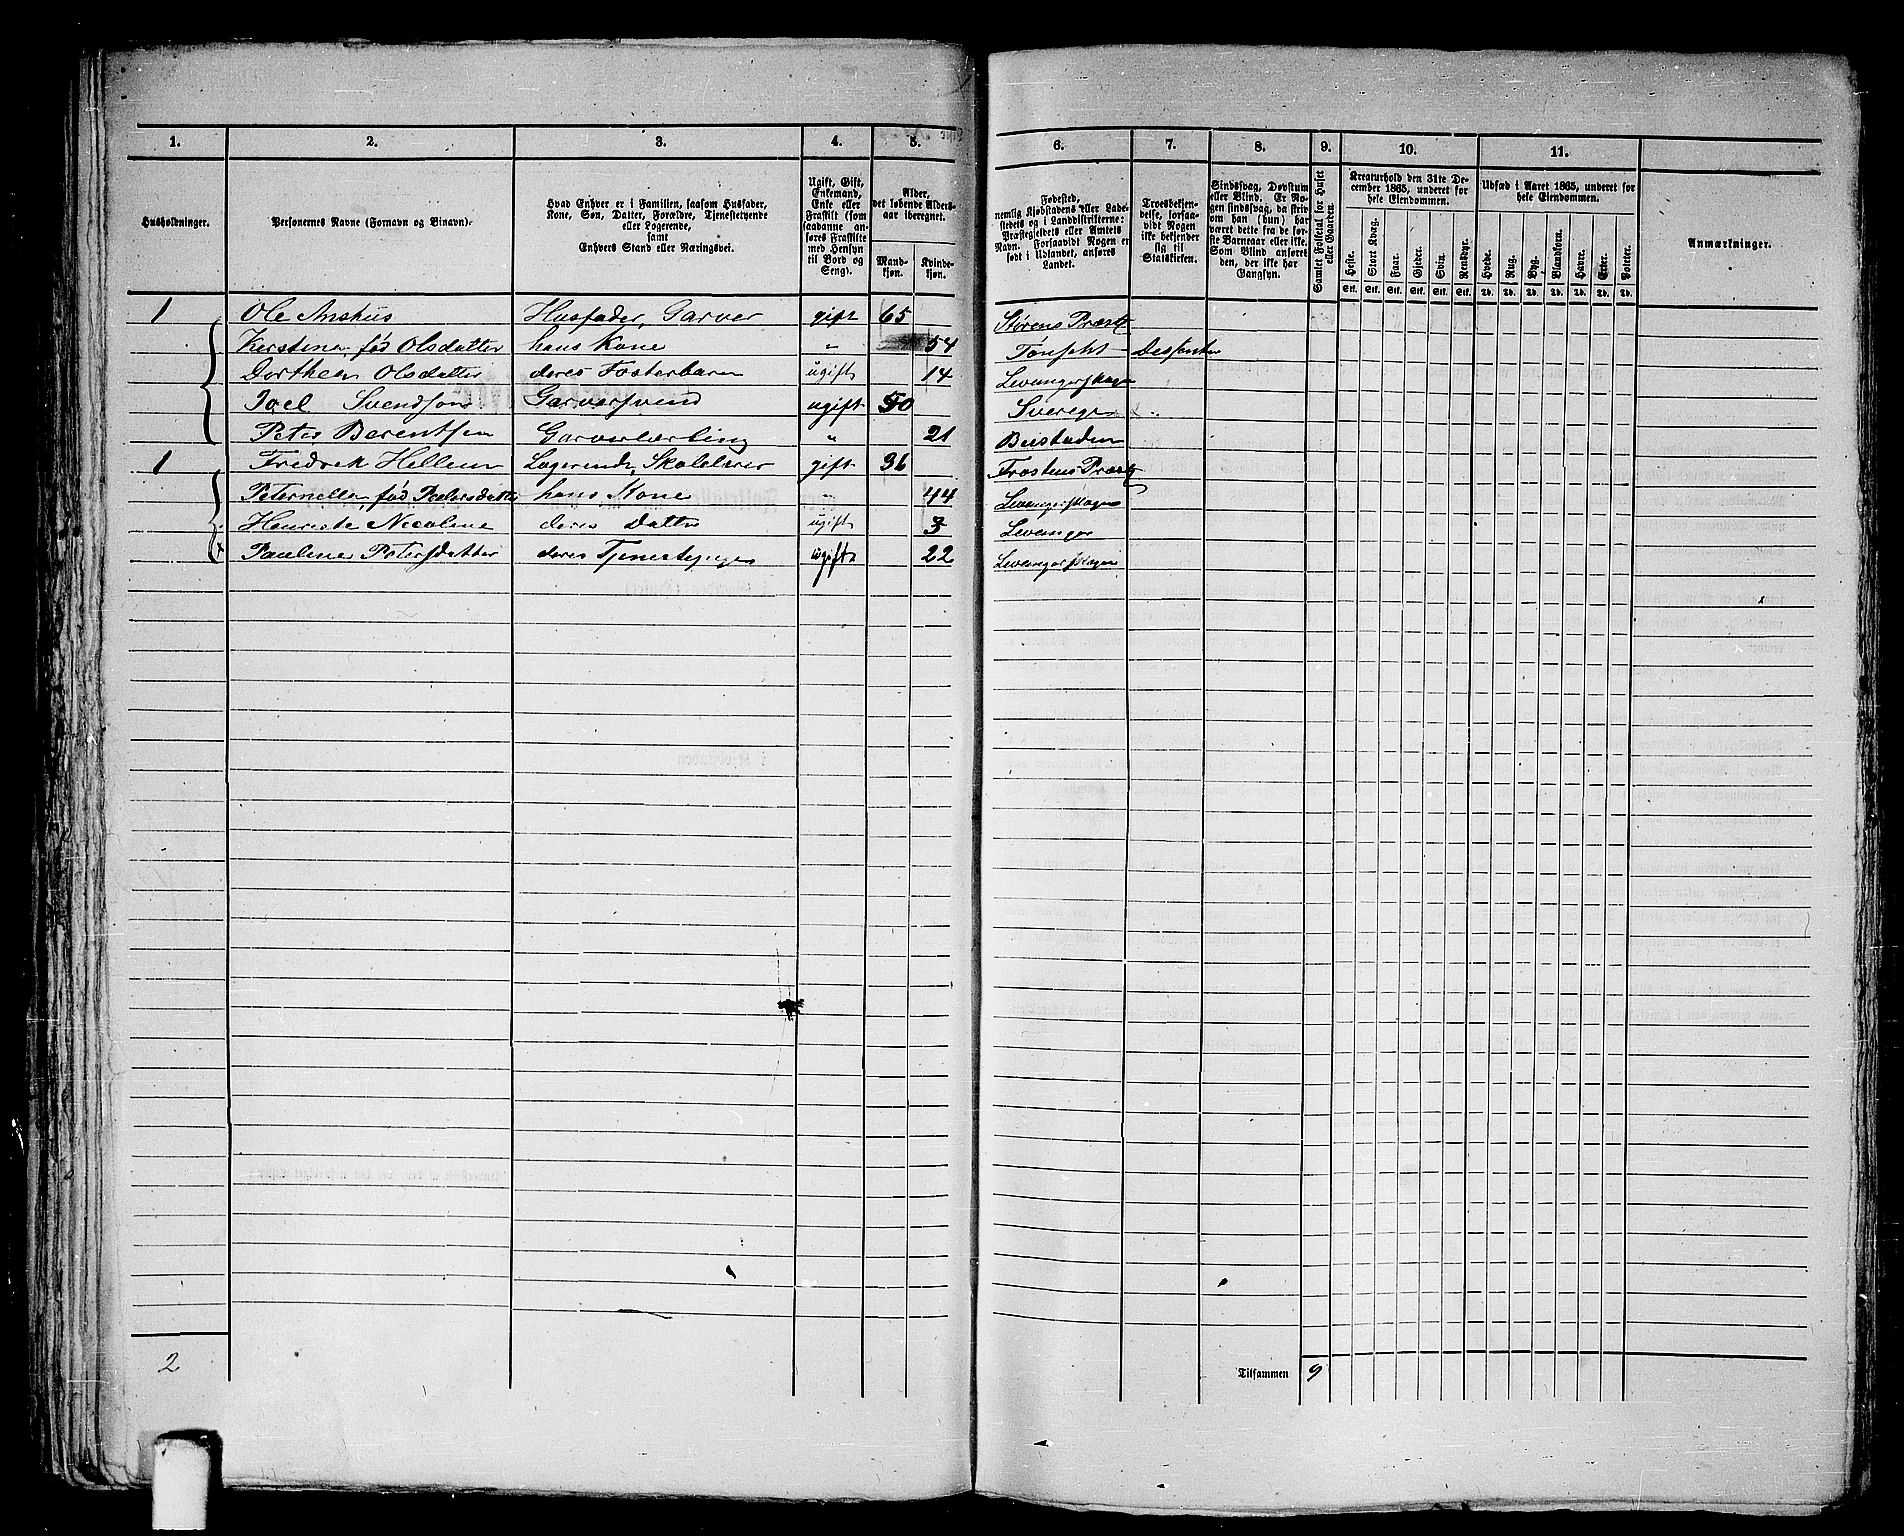 1. 2. 3. 4. 5. 6. 7. 8. 9. 10. 11.
Husholdninger.
Personernes Navne (Fornavn og Binavn).
Hvad Enhver er i Familien, saasom Husfader,
Kone, Søn, Datter, Forældre, Tjenestetyende
eller Logerende,
samt
Enhvers Stand eller Næringsvei.
Ugift, Gift,
Enkemand,
Enke eller
Fraskilt (som
saadanne an-
føres Fraskilte
med Hensyn
til Bord og
Seng).
Alder,
det løbende Alders-
aar iberegnet.
Mand-
kjøn.
Kvinde-
kjøn.
Fødested,
nemlig Kjøbstadens eller Lade-
stedets og i Landdistrikterne:
Præstegjeldets eller Amtets
Navn. Forsaavidt Nogen er
født i Udlandet, anføres
Landet.
Troesbekjen-
delse, forsaa-
vidt Nogen
ikke bekjender
sig til
Statskirken.
Sindssvag, Døvstum
eller Blind. Er No-
gen sindssvag, da skriv
om han (hun) har
været dette fra de før-
ste Barneaar eller ikke.
Som Blind anføres
den, der ikke har
Gangsyn.
Samlet Folketal for Huset
eller Gaarden.
Kreaturhold den 31te De-
cember 1865, underet for
hele Eiendommen.
Heste. Stort Kvæg. Faar. Gjeder. Svin. Rensdyr.
Stk. Stk. Stk. Stk. Stk. Stk.
Udsæd i Aaret 1865, underet for
hele Eiendommen.
Hvede. Rug. Byg. Blandkorn. Havre. Erter. Poteter.
Td. Td. Td. Td. Td. Td. Td.
Anmærkninger.
1 Ole Anshus Husfader, Garver gift 65 Størens Præstg
Kerstina, fød Olsdatter hans Kone " 54 Tønset Dessenter
Dorthea Olsdatter deres Fosterbarn ugift 14 Levangerskogn
Joel Svendson Garversvend ugift 50 Sverege "
Peter Berentsen Garverlærling " 21 Beistaden
1 Fredrik Hellem Logerende, Skolelærer gift 36 Frostens Præstg
Peternella, fød Pedersdatter hans Kone " 44 Levangerskogn
Henriete Nicoline deres Datter ugift 3 Levanger
x Pauline Petersdatter deres Tjenestepige ugift 22 Levangerskogn
2 Tilsammen 9